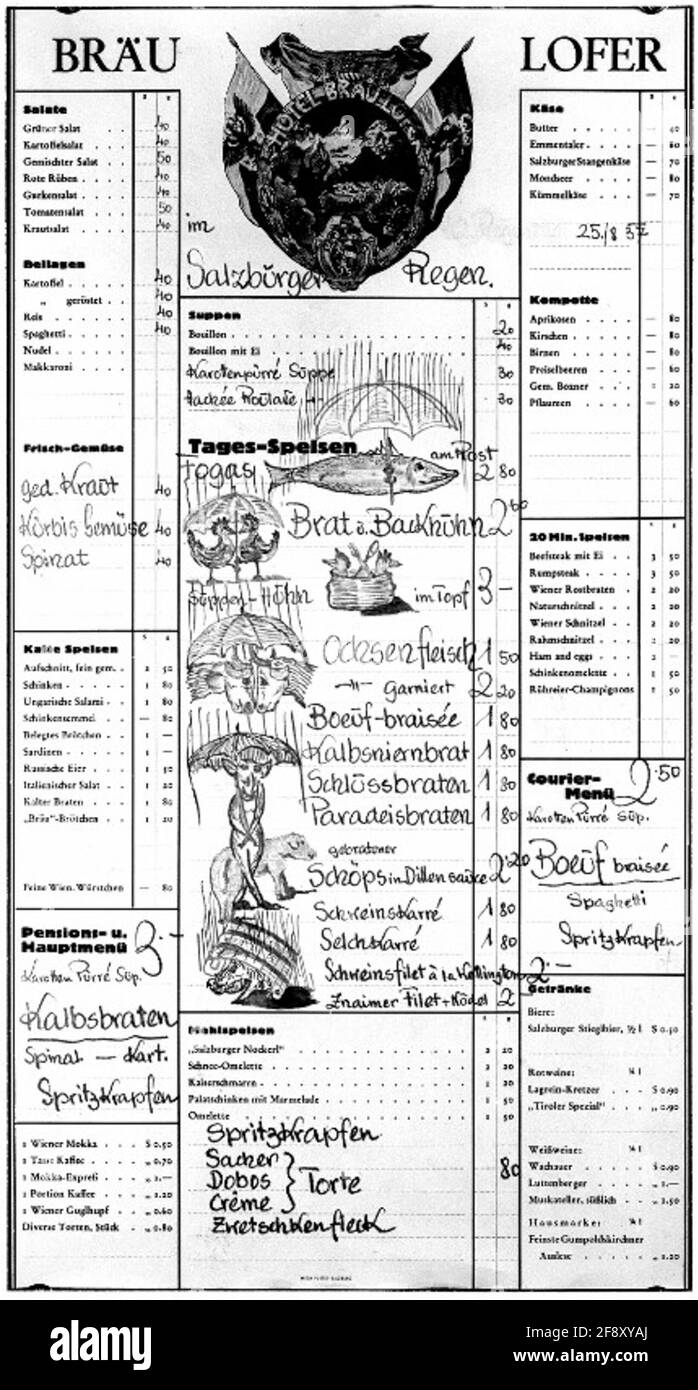 BRÄU
LOFER
HOTEL BRÄU LOFER
im
Salzbürger Regen.
Salate
Grüner Salat . . . 40
Kartoffelsalat . . . 40
Gemischter Salat . . 50
Rote Rüben . . . 40
Gurkensalat . . . 40
Tomatensalat . . . 50
Krautsalat . . . 40
Beilagen
Kartoffel . . . 40
„ geröstet . . 40
Reis . . . 40
Spaghetti . . . 40
Nudel . . .
Makkaroni . . .
Frisch-Gemüse
ged. Kraut 40
Kürbis Gemüse 40
Spinat 40
S g
Kalte Speisen
Aufschnitt, fein gem. . 2 50
Schinken . . . 1 80
Ungarische Salami . . 1 80
Schinkensemmel . . — 80
Belegtes Brötchen . . 1 —
Sardinen . . . 1 —
Russische Eier . . 1 50
Italienischer Salat . . 1 20
Kalter Braten . . . 1 80
„Bräu“-Brötchen . . 1 20
Feine Wien. Würstchen — 80
Pensions- u.
Hauptmenü 3.-
Karotten Pürré Süp.
Kalbsbraten
Spinat — Kart.
Spritzkrapfen
1 Wiener Mokka . . . S 0.50
1 Tasse Kaffee . . . „ 0.70
1 Mokka-Expreß . . „ 1.—
1 Portion Kaffee . . „ 1.20
1 Wiener Guglhupf . . „ 0.60
Diverse Torten, Stück . „ 0.80
S g
Suppen
Bouillon . . . 20
Bouillon mit Ei . . . 40
Karottenpürré Süppe 30
Hachée Roulade 30
Tages-Speisen
Fogas am Rost 2 80
Brat ü. Backhühn 2 50
Süppen-Hühn im Topf 3 —
Ochsenfleisch 1 50
-"- garniert 2 20
Boeüf-braisée 1 80
Kalbsniernbrat 1 80
Schlüssbraten 1 80
Paradeisbraten 1 80
gebratener
Schöps in Dillensauce 2 20
Schweinskarré 1 80
Selchkarré 1 80
Schweinsfilet à la Wellington 2.-
Znaimer Filet + Knödel 2
Mehlspeisen
„Salzburger Nockerl“ 2 20
Schnee-Omelette . . . 2 20
Kaiserschmarrn . . . 1 20
Palatschinken mit Marmelade . . . 1 50
Omelette . . . 1 50
Spritzkrapfen
Sacher
Dobos Torte 80
Crême
Zwetschkenfleck
Käse
Butter . . . — 40
Emmentaler . . . — 80
Salzburger Stangenkäse — 70
Mondseer . . . — 80
Kümmelkäse . . . — 70
25./8 37
Kompotte
Aprikosen . . . — 80
Kirschen . . . — 80
Birnen . . . — 80
Preiselbeeren . . . — 60
Gem. Bozner . . . 1 20
Pflaumen . . . — 60
20 Min. Speisen
Beefsteak mit Ei . . 3 50
Rumpsteak . . . 3 50
Wiener Rostbraten . 2 20
Naturschnitzel . . 2 20
Wiener Schnitzel . . 2 20
Rahmschnitzel . . 2 20
Ham and eggs . . 2 —
Schinkenomelette . . 1 50
Rühreier-Champignons 1 50
Courier-
Menü 2.50
Karotten Pürré Süp.
Boeüf braisée
Spaghetti
Spritzkrapfen
Getränke
Biere:
Salzburger Stieglbier, ½ l S 0.50
Rotweine: ¼ l
Lagrein-Kretzer . . S 0.90
„Tiroler Spezial“ . . „ 0.90
Weißweine: ¼ l
Wachauer . . . S 0.90
Luttenberger . . . „ 1.—
Muskateller, süßlich . „ 1.50
Hausmarke: ¼ l
Feinste Gumpoldskirchner
Auslese . . . „ 1.20
alamy
Image ID: 2F8XYAJ
www.alamy.com